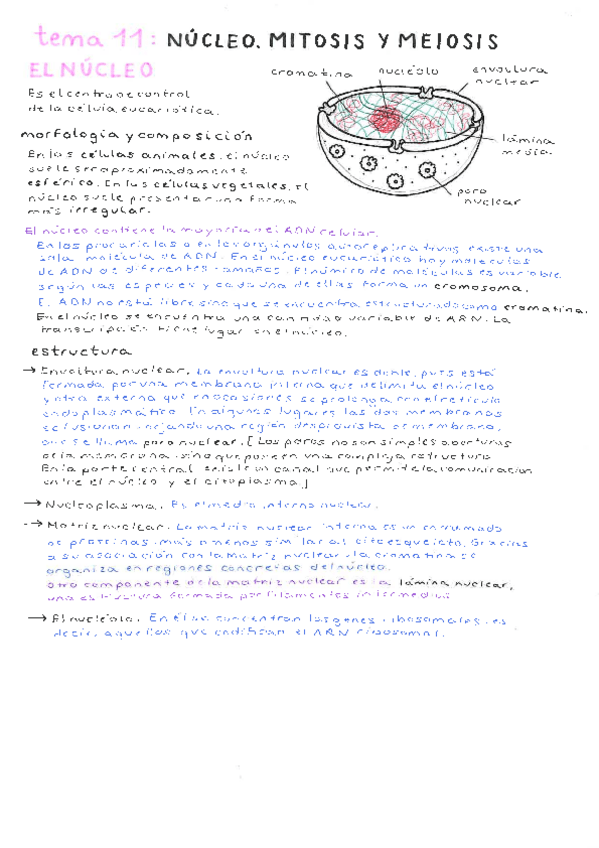 tema 11: NÚCLEO. MITOSIS Y MEIOSIS
EL NÚCLEO
cromatina
nucléolo
envoltura
nuclear
lámina
media
poro
nuclear
Es el centro de control
de la célula eucariótica.
morfología y composición
En las células animales, el núcleo
suele ser aproximadamente
esférico. En las células vegetales, el
núcleo suele presentar una forma
más irregular.
El núcleo contiene la mayoría del ADN celular.
En los procariotas o en los orgánulos autoreplicativos existe una
sola molécula de ADN. En el núcleo eucariótico hay moléculas
de ADN de diferentes tamaños. El número de moléculas es variable
según las especies y cada una de ellas forma un cromosoma.
El ADN no está libre sino que se encuentra estructurado como cromatina.
En el núcleo se encuentra una cantidad variable de ARN. La
transcripción tiene lugar en el núcleo.
estructura
→ Envoltura nuclear. La envoltura nuclear es doble, pues está
formada por una membrana interna que delimita el núcleo
y otra externa que en ocasiones se prolonga con el retículo
endoplasmático. En algunos lugares las dos membranas
se fusionan dejando una región desprovista de membrana,
que se llama poro nuclear. [Los poros no son simples aberturas
de la membrana sino que poseen una compleja estructura
En la parte central existe un canal que permite la comunicación
entre el núcleo y el citoplasma.]
→ Nucleoplasma. Es el medio interno nuclear.
→ Matriz nuclear. La matriz nuclear interna es un entramado
de proteínas más o menos similar al citoesqueleto. Gracias
a su asociación con la matriz nuclear, la cromatina se
organiza en regiones concretas del núcleo.
Otro componente de la matriz nuclear es la lámina nuclear,
una estructura formada por filamentos intermedios
→ El nucléolo. En él se concentran los genes ribosomales, es
decir, aquellos que codifican el ARN ribosomal.